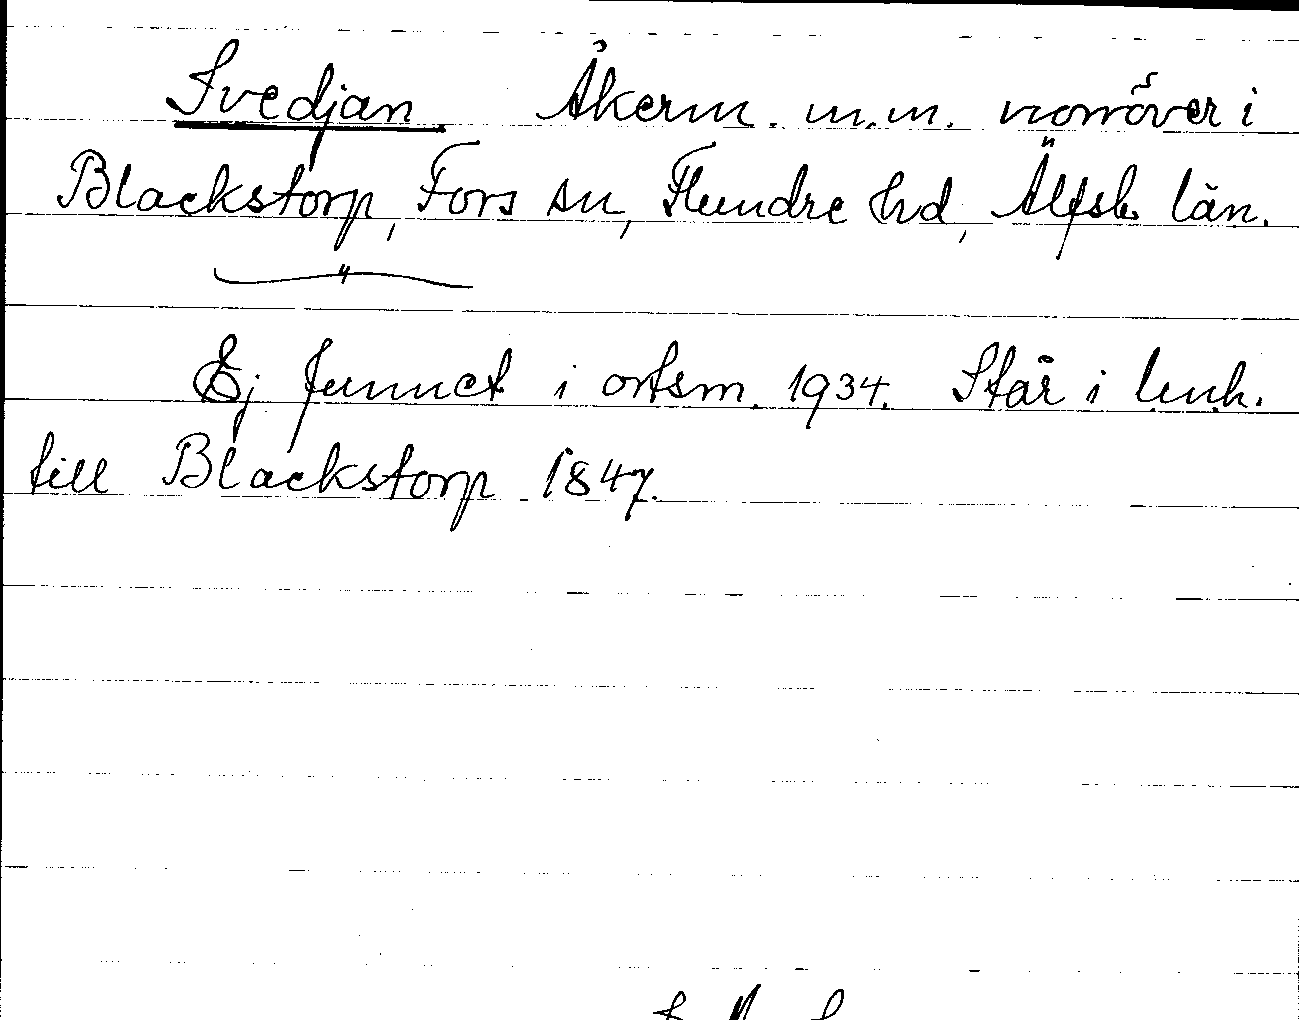 Svedjan. Åkerm. m.m. norröver i
Blackstorp, Fors sn, Flundre hd, Älfsb. län.
Ej funnet i ortsm. 1934. Står i lenh.
till Blackstorp 1847.